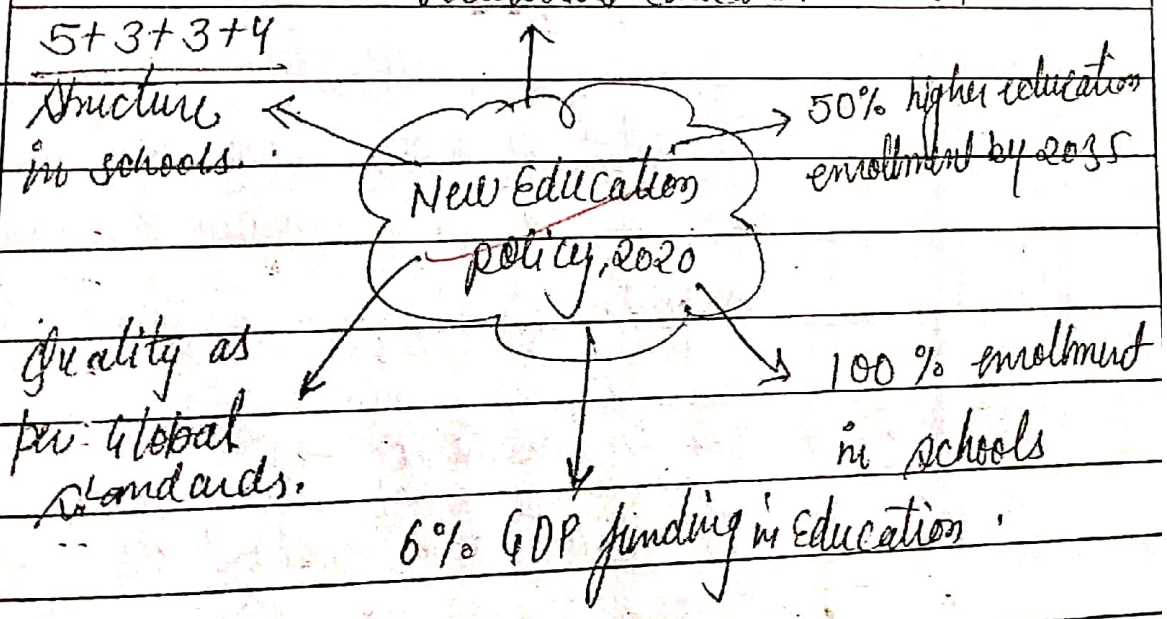 5+3+3+4
structure
in schools.
50% higher education
enrollment by 2035
New Education
policy, 2020
Quality as
per Global
standards.
100% enrollment
in schools
6% GDP funding in Education.